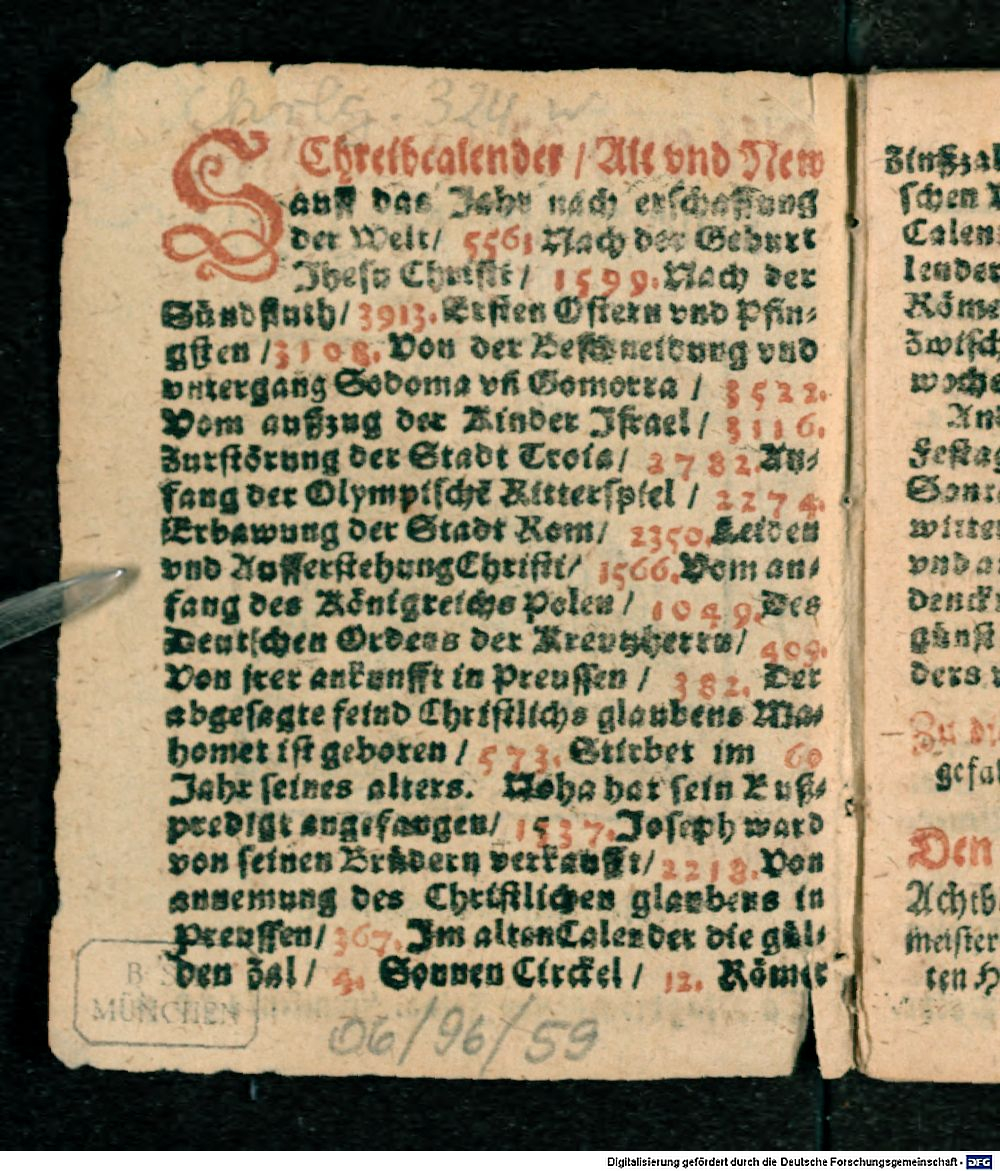 Chrlg. 324 w
SChreibcalender / Alt vnd New
auff das Jahr nach erschaffung
der Welt / 5561 Nach der Geburt
Jhesu Christi / 1599. Nach der
Sündfluth / 3913. Ersten Ostern vnd Pfin⸗
gsten / 3108. Von der Beschneidung vnd
vntergang Sodoma vn̄ Gomorra / 3522.
Vom außzug der Kinder Israel / 3116.
Zurstörung der Stadt Troia / 2782. An⸗
fang der Olympischē Ritterspiel / 2274.
Erbawung der Stadt Rom / 2350. Leiden
vnd Aufferstehung Christi / 1566. Vom an⸗
fang des Königreichs Polen / 1049. Des
Deutschen Ordens der Kreutzherrn / 409.
Von jrer ankunfft in Preussen / 382. Der
abgesagte feind Christlichs glaubens Ma⸗
homet ist geboren / 573. Stirbet im 60
Jahr seines alters. Noha hat sein Buß⸗
predigt angefangen / 1537. Joseph ward
von seinen Brüdern verkaufft / 2218. Von
annemung des Christlichen glaubens in
Preussen / 367. Im alten Calender die gül⸗
den Zal / 4. Sonnen Circkel / 12. Römer
B S
MÜNCHEN
06/96/59
schen
Calen
lender
Röme
zwisch
woche
An
Festag
vnd a
günst
ders
Zu di
gefal
Den
Achtb
meister
ten H
Digitalisierung gefördert durch die Deutsche Forschungsgemeinschaft - DFG